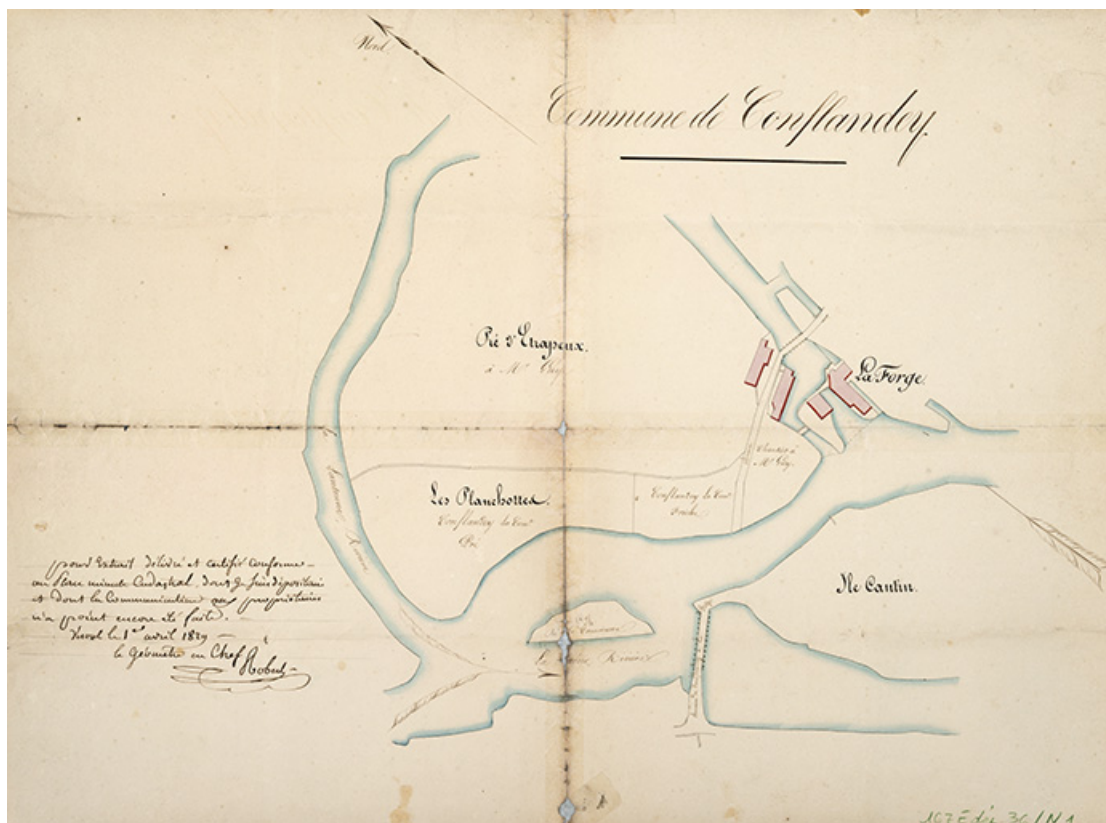 Nord.
Commune de Conflandey
Pré d'Etrapeux.
à Mr Gley
La Forge.
à
Mr Gley.
la
Lanterne Rivière
Les Planchottes.
Conflandey la Com
Pré
Conflandey la Com
Ile Cantin.
la Saône Rivière
pour Extrait délivré et certifié conforme
au Plan minute Cadastral, dont je suis dépositaire
et dont la Communication aux propriétaires
n'a point encore été faite.
Vesoul le 1er avril 1829
le Géomètre en Chef
Robert
167 E dép 36 / N 1